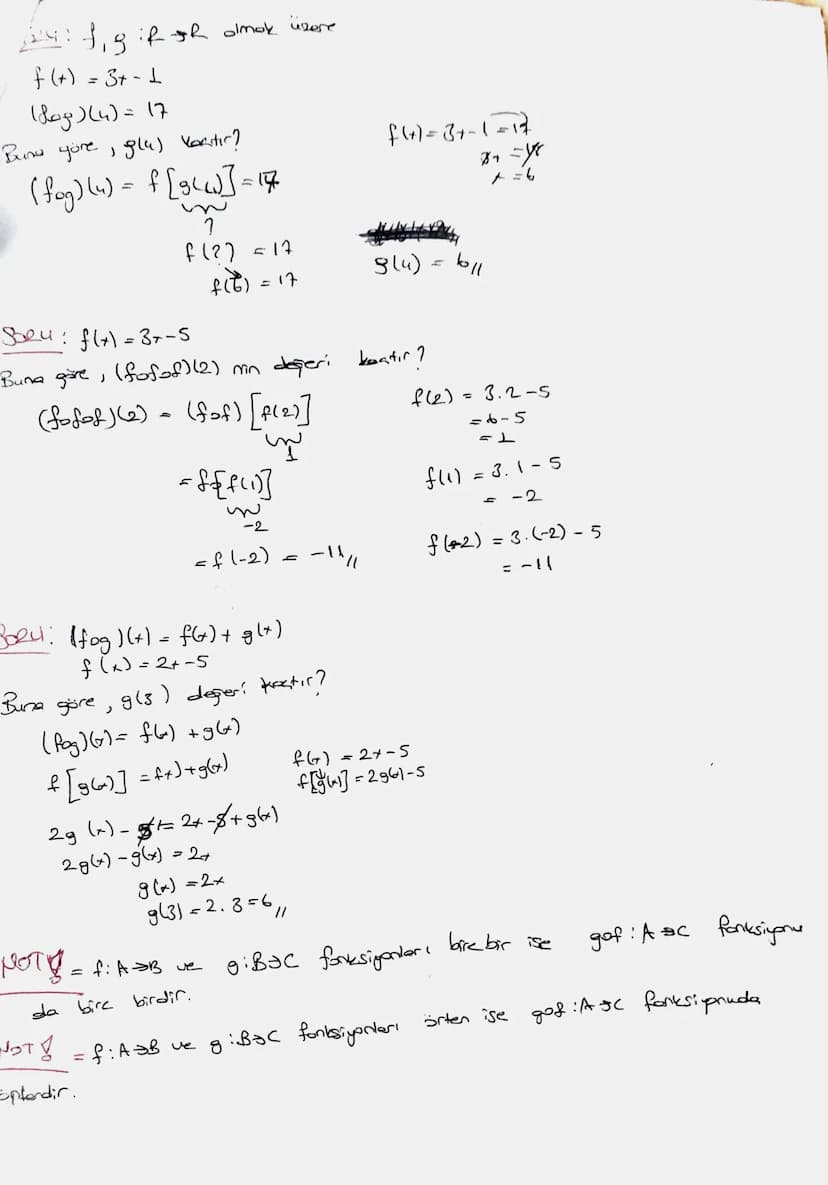 f, g : R → R olmak üzere
f(x) = 3x - 1
(fog)(4) = 17
Buna göre, g(4) kaçtır?
(fog)(4) = f[g(4)] = 17
?
f(?) = 17
f(6) = 17
f(x) = 3x - 1 = 17
x = 6
g(4) = 6 //
Soru : f(x) = 3x - 5
Buna göre, (fofof)(2) nin değeri kaçtır?
(fofof)(2) = (fof)[f(2)]
1
= f[f(1)]
-2
= f(-2) = -11 //
f(2) = 3.2 - 5
= 6 - 5
= 1
f(1) = 3.1 - 5
= -2
f(-2) = 3.(-2) - 5
= -11
Soru : (fog)(x) = f(x) + g(x)
f(x) = 2x - 5
Buna göre, g(3) değeri kaçtır?
(fog)(x) = f(x) + g(x)
f[g(x)] = f(x) + g(x)
2g(x) - 5 = 2x - 5 + g(x)
2g(x) - g(x) = 2x
g(x) = 2x
g(3) = 2.3 = 6 //
f(x) = 2x - 5
f[g(x)] = 2g(x) - 5
NOT! = f : A → B ve g : B → C fonksiyonları birebir ise gof : A → C fonksiyonu
da bire birdir.
NOT! = f : A → B ve g : B → C fonksiyonları örten ise gof : A → C fonksiyonuda
örtendir.